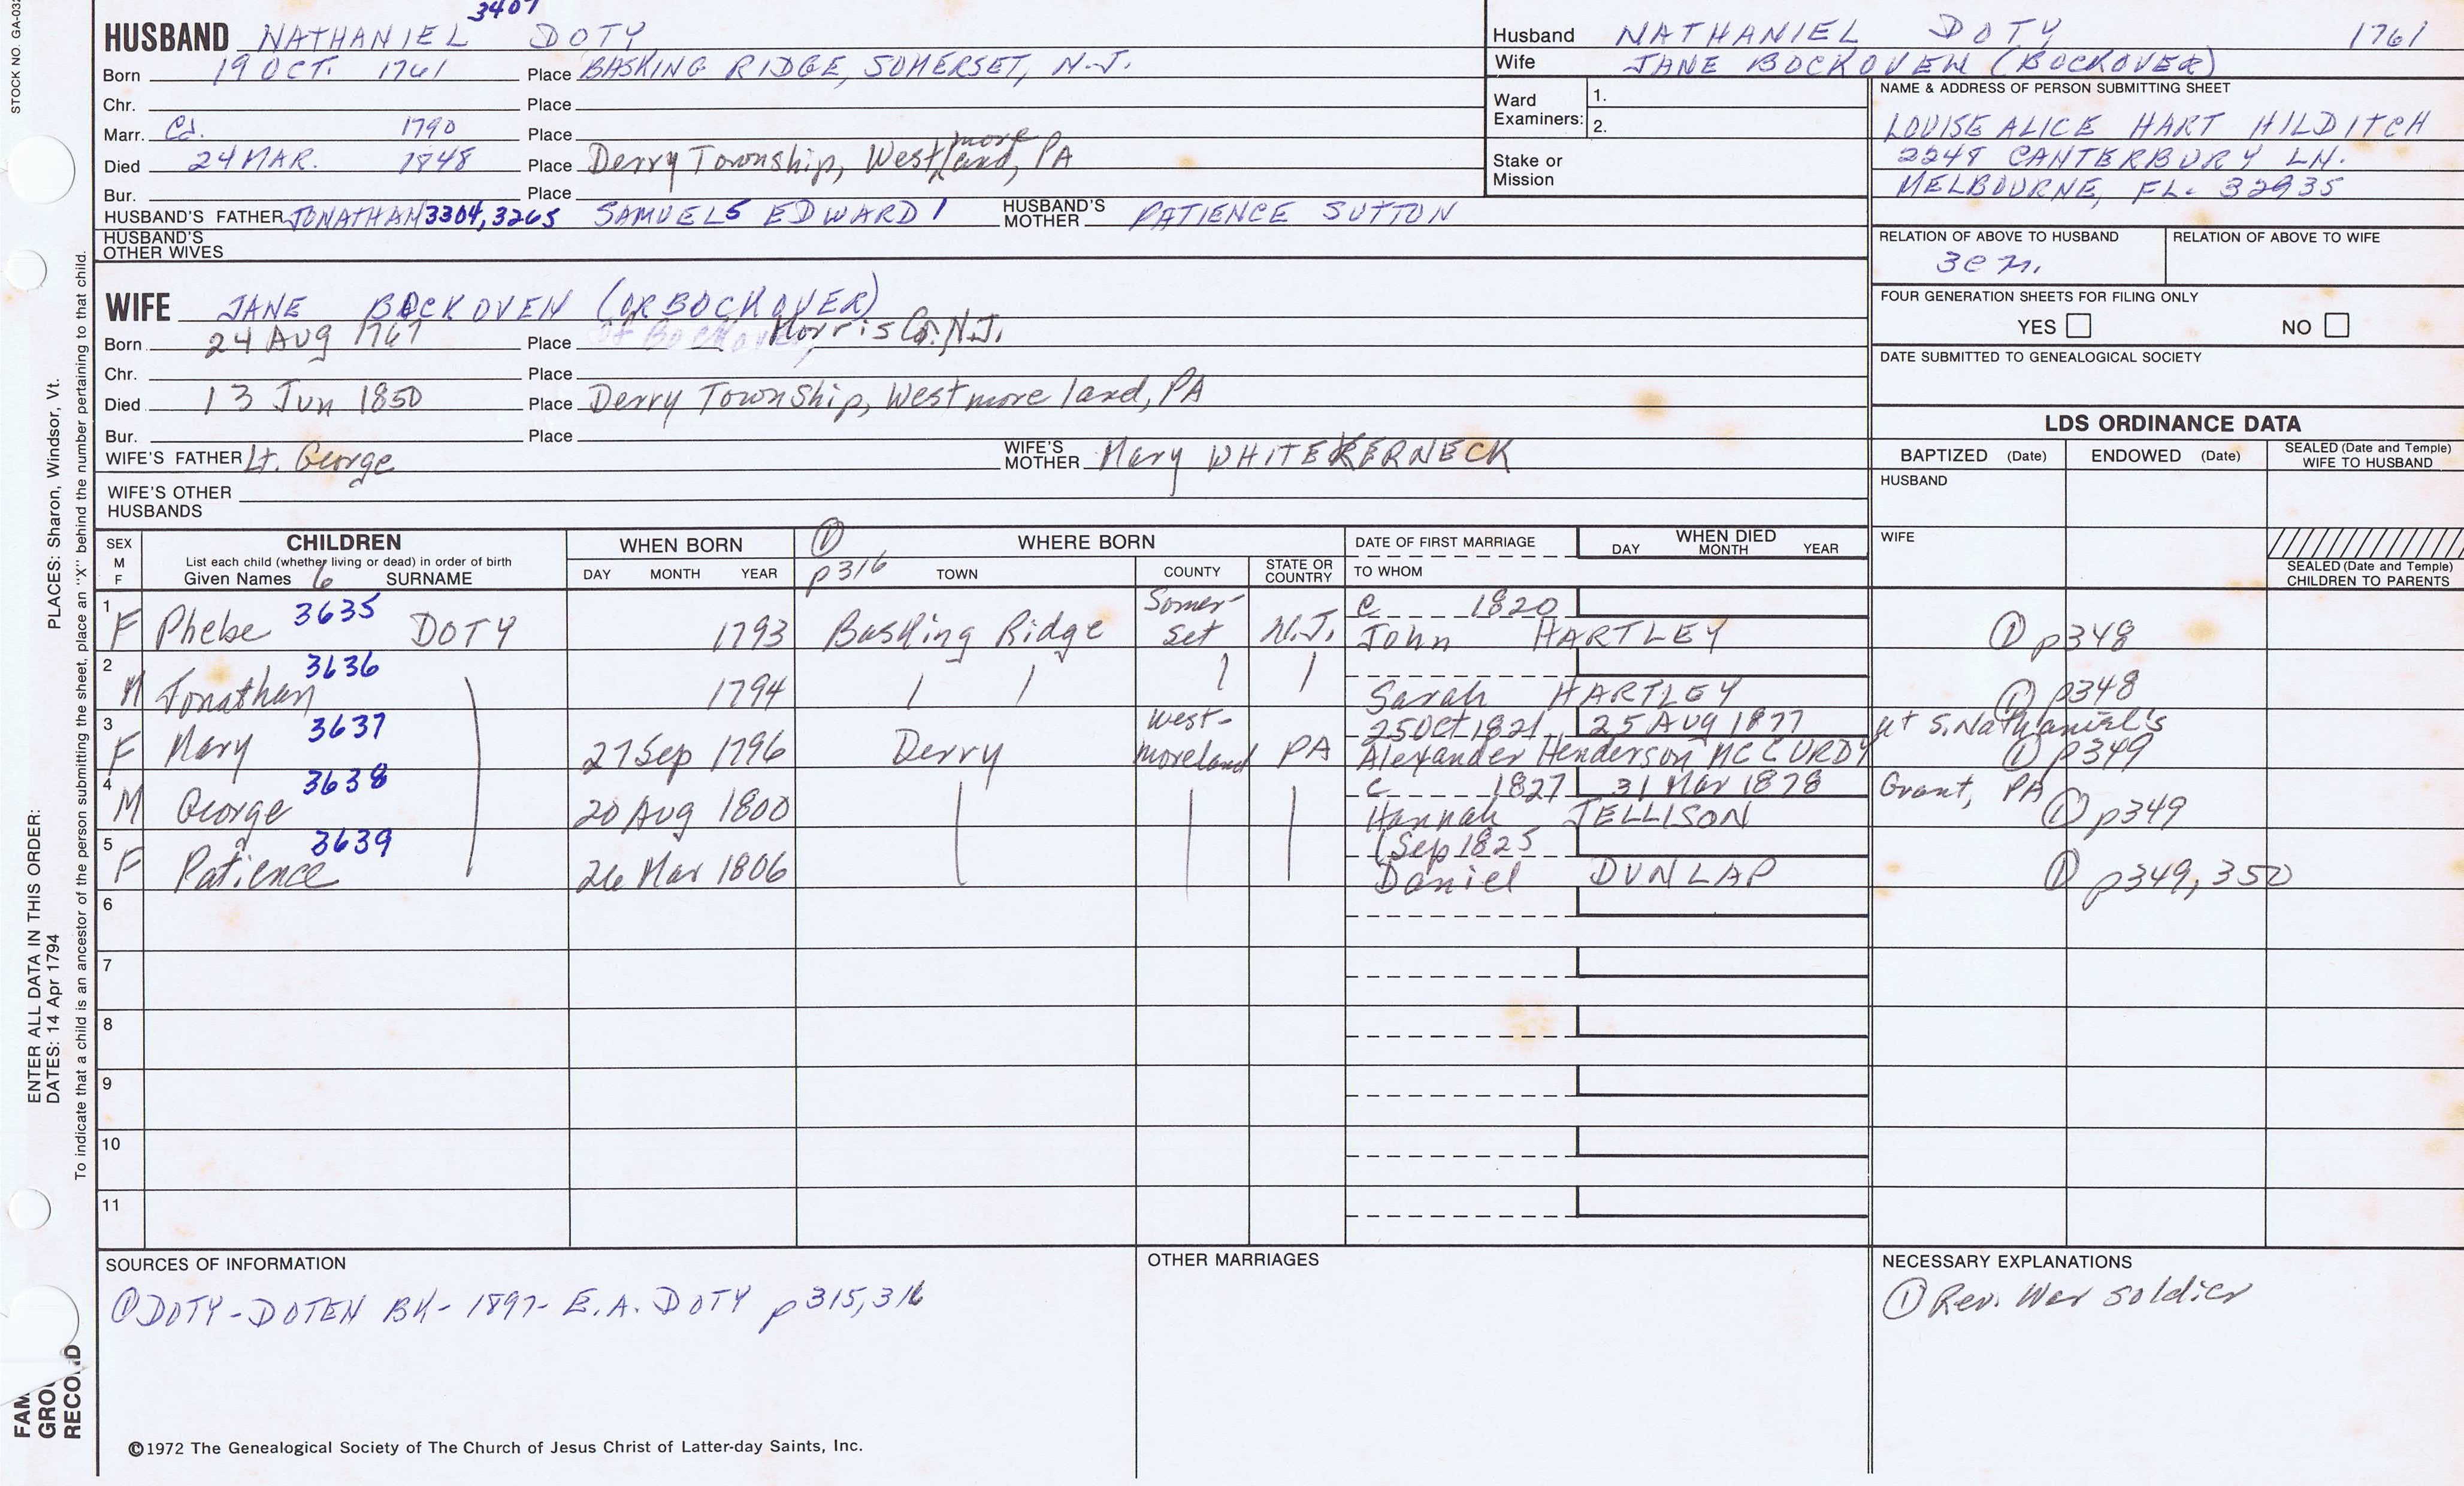 STOCK NO. GA-03
3407
HUSBAND NATHANIEL DOTY
Born 19 OCT. 1761 Place BASKING RIDGE, SOMERSET, N.J.
Chr. Place
Marr. Cd. 1790 Place
Died 24 MAR. 1848 Place Derry Township, Westmoreland, PA
Bur. Place
HUSBAND'S FATHER JONATHAN 3304, 3265 SAMUEL5 EDWARD1 HUSBAND'S MOTHER PATIENCE SUTTON
HUSBAND'S OTHER WIVES
WIFE JANE BOCKOVEN (OR BOCKOVER)
Born 24 Aug 1767 Place Morris Co. N.J.
Chr. Place
Died 13 Jun 1850 Place Derry Township, Westmoreland, PA
Bur. Place
WIFE'S FATHER Lt. George WIFE'S MOTHER Mary WHITEKERNECK
WIFE'S OTHER HUSBANDS
Husband NATHANIEL DOTY 1761
Wife JANE BOCKOVEN (BOCKOVER)
Ward Examiners: 1.
2.
Stake or Mission
NAME & ADDRESS OF PERSON SUBMITTING SHEET
LOUISE ALICE HART HILDITCH
2248 CANTERBURY LN.
MELBOURNE, FL. 32935
RELATION OF ABOVE TO HUSBAND RELATION OF ABOVE TO WIFE
FOUR GENERATION SHEETS FOR FILING ONLY
YES NO
DATE SUBMITTED TO GENEALOGICAL SOCIETY
LDS ORDINANCE DATA
BAPTIZED (Date) ENDOWED (Date) SEALED (Date and Temple) WIFE TO HUSBAND
HUSBAND
WIFE
SEALED (Date and Temple) CHILDREN TO PARENTS
SEX M F
CHILDREN
List each child (whether living or dead) in order of birth
Given Names 6 SURNAME
WHEN BORN
DAY MONTH YEAR
① p316
WHERE BORN
TOWN COUNTY STATE OR COUNTRY
DATE OF FIRST MARRIAGE
TO WHOM
WHEN DIED
DAY MONTH YEAR
1 F Phebe 3635 DOTY 1793 Basking Ridge Somer-set N.J. c 1820 John HARTLEY ① p348
2 M Jonathan 3636 1794 Sarah HARTLEY ① p348
3 F Mary 3637 27 Sep 1796 Derry West-moreland PA 25 Oct 1821 25 Aug 1877 Alexander Henderson MCCURDY at S. Nathanial's ① p349
4 M George 3638 20 Aug 1800 c 1827 31 Mar 1878 Hannah JELLISON Grant, PA ① p349
5 F Patience 3639 26 Mar 1806 Sep 1825 Daniel DUNLAP ① p349, 350
6
7
8
9
10
11
SOURCES OF INFORMATION
① DOTY-DOTEN BK-1897-E.A. DOTY p315,316
OTHER MARRIAGES
NECESSARY EXPLANATIONS
① Rev. War soldier
©1972 The Genealogical Society of The Church of Jesus Christ of Latter-day Saints, Inc.
ENTER ALL DATA IN THIS ORDER:
DATES: 14 Apr 1794 PLACES: Sharon, Windsor, Vt.
To indicate that a child is an ancestor of the person submitting the sheet, place an "X" behind the number pertaining to that child.
FAM
GROU
RECORD